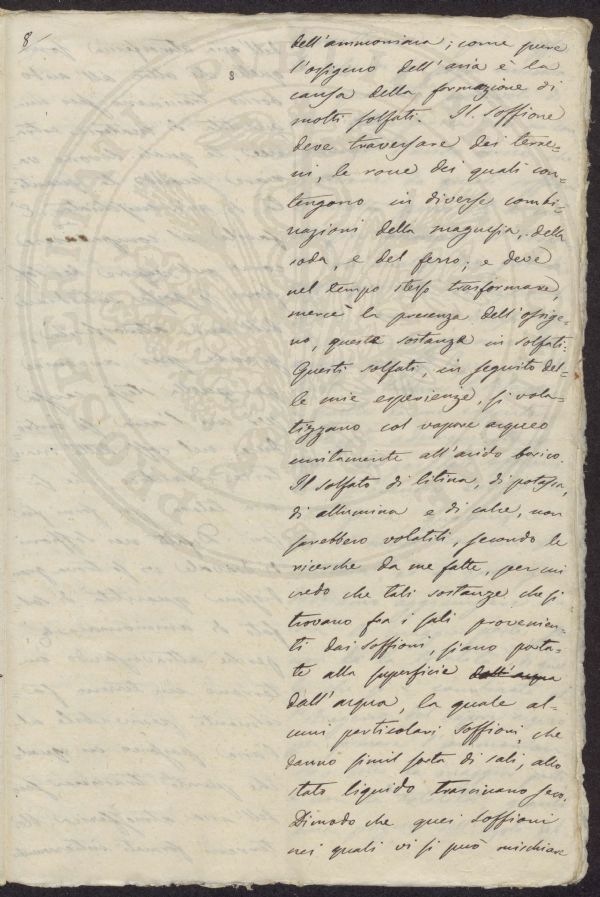 8/
8
dell'ammoniaca; come pure
l'ossigeno dell'aria è la
causa della formazione di
molti solfati. Il soffione
deve traversare dei terre-
ni, le rocce dei quali con-
tengono in diverse combi-
nazioni della magnesia, della
soda, e del ferro; e deve
nel tempo stesso trasformare,
mercè la presenza dell'ossige-
no, queste sostanze in solfati.
Questi solfati, in seguito del-
le mie esperienze, si vola-
tizzano col vapore acqueo
unitamente all'acido borico.
Il solfato di litina, di potassa,
di allumina e di calce, non
sarebbero volatili, secondo le
ricerche da me fatte, per cui
credo che tali sostanze che si
trovano fra i sali provenien-
ti dai soffioni, siano porta-
te alla superficie dall'acqua
dall'acqua, la quale al-
cuni particolari soffioni, che
danno simil sorta di sali, allo
stato liquido trascinano seco.
Dimodo che quei soffioni
nei quali vi si può mischiare